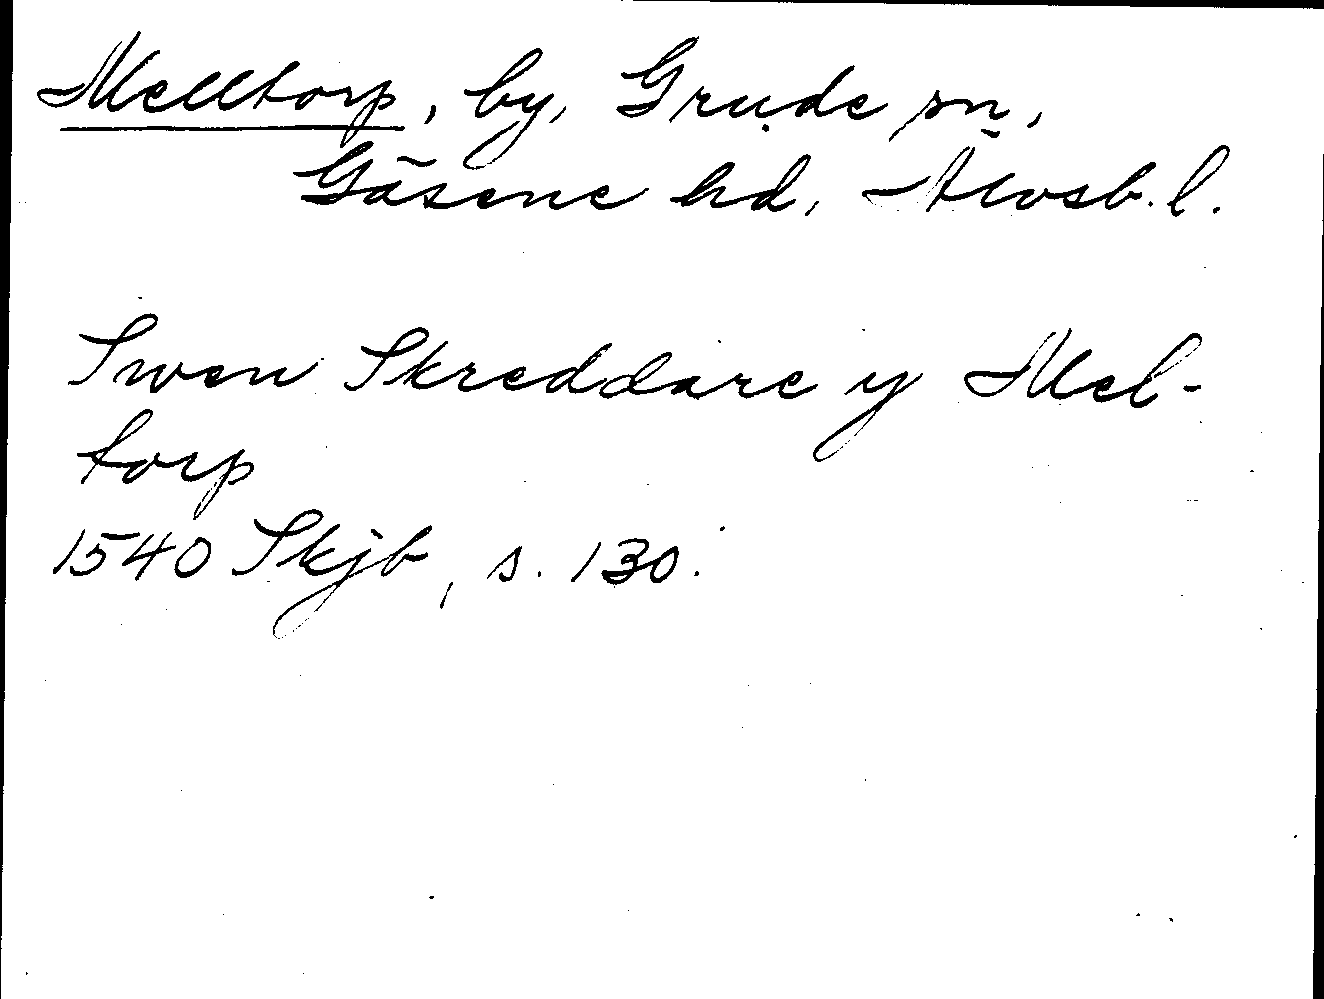 Melltorp, by, Grude sn,
Gäsene hd, Älvsb. l.
Swen Skreddare y Mel-
torp
1540 Skjb, s. 130.